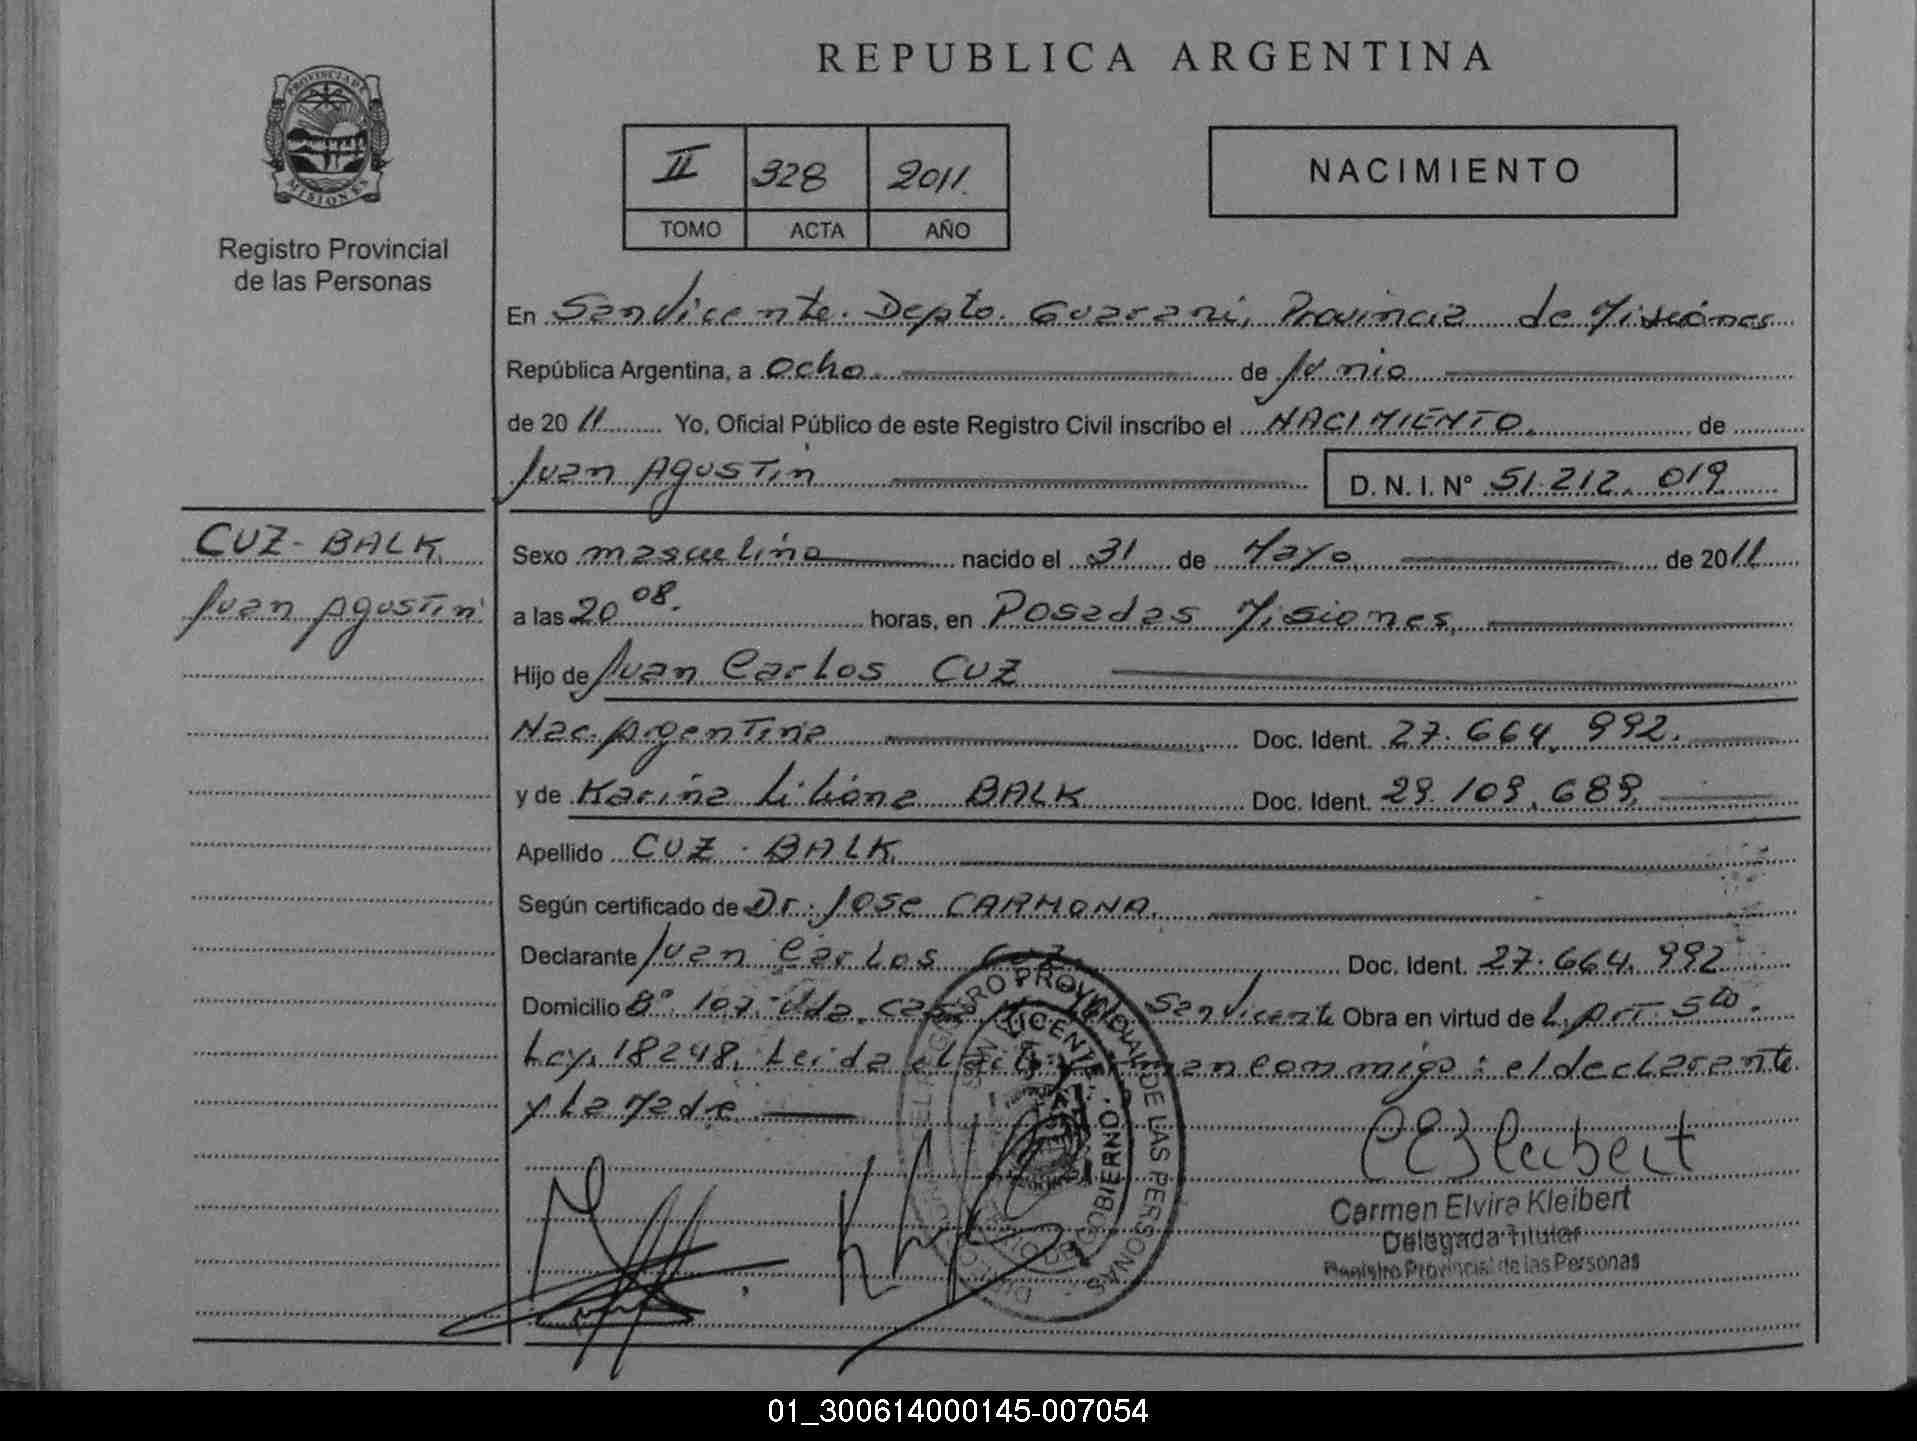 REPUBLICA ARGENTINA
PROVINCIA DE
MISIONES
Registro Provincial
de las Personas
II 328 2011
TOMO ACTA AÑO
NACIMIENTO
En San Vicente. Depto. Guarani, Provincia de Misiones
República Argentina, a Ocho de Junio
de 2011 Yo, Oficial Público de este Registro Civil inscribo el NACIMIENTO. de
Juan Agustin D. N. I. Nº 51.212.019
CUZ - BALK
Juan Agustin
Sexo masculino nacido el 31 de Mayo de 2011
a las 20 08. horas, en Posadas Misiones,
Hijo de Juan Carlos CUZ
Nac. Argentina Doc. Ident. 27.664.992.
y de Karina Liliana BALK Doc. Ident. 29.109.689
Apellido CUZ - BALK
Según certificado de Dr. Jose CARMONA.
Declarante Juan Carlos Cuz. Doc. Ident. 27.664.992
Domicilio Bº 107 San Vicente Obra en virtud de L. Art. 5to.
Ley. 18248. Leida el conmigo: el declarante
y La Madre
REGISTRO PROVINCIAL DE LAS PERSONAS
SAN VICENTE
GOBIERNO
CEKleibert
Carmen Elvira Kleibert
Delegada Titular
Registro Provincial de las Personas
01_300614000145-007054